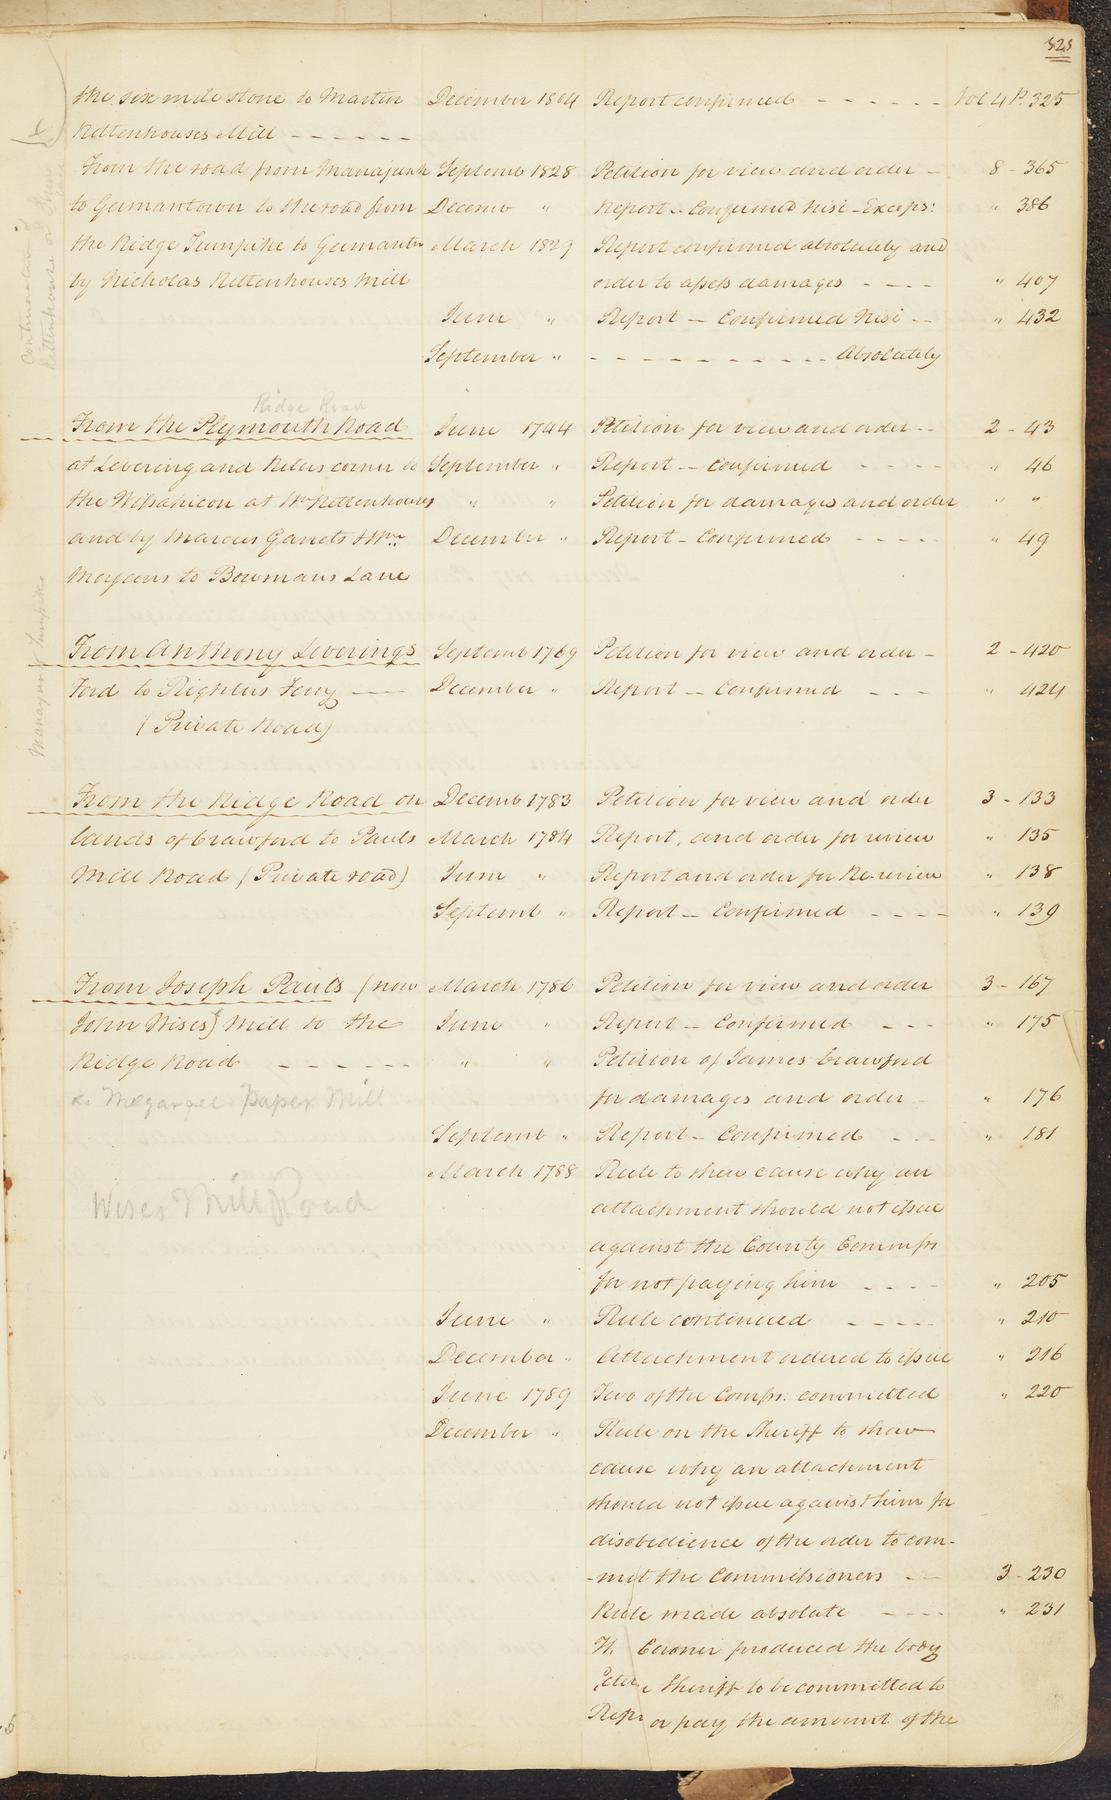 the six mile stone to Martin December 1804 Report confirmed - - - - - - Vol 4 P. 325
Rittenhouses Mill - - - - - -
From the road from Manajunk Septemb 1828 Petition for view and order - 8 - 365
to Germantown to the road from Decemb " Report - Confirmed Nisi - Exceps: " 386
the Ridge Turnpike to Germantn March 1829 Report confirmed absolutely and
by Nicholas Rittenhouses Mill order to assess damages - - - - " 407
June " Report - Confirmed Nisi - - " 432
September " - - - - - - - - - - - Absolutely
Ridge Road
From the Plymouth Road June 1744 Petition for view and order - - 2 - 43
at Levering and Kiters corner to September " Report - - Confirmed - - - - - " 46
the Wissahicon at Wm Rittenhouses " " Petition for damages and order " "
and by Marcus Garrets & Wm December " Report - Confirmed - - - - - " 49
Morgans to Bowmans Lane
From Anthony Leverings Septemb 1769 Petition for view and order - 2 - 420
Ford to Righters Ferry - December " Report - - Confirmed - - - " 424
(Private Road)
From the Ridge Road on Decemb 1783 Petition for view and order 3 - 133
lands of Crawford to Pauls March 1784 Report, and order for review " 135
Mill Road (Private road) June " Report and order for Re-review " 138
Septemb " Report - Confirmed - - - - " 139
From Joseph Pauls (now March 1786 Petition for view and order 3 - 167
John Wises) Mill to the June " Report - Confirmed - - - " 175
Ridge Road - - - - - - " " Petition of James Crawford
Megargee Paper Mill for damages and order - " 176
Septemb " Report - Confirmed - - - " 181
March 1788 Rule to shew cause why an
Wises Mill Road attachment should not issue
against the County Commrs
for not paying him - - - - " 205
June " Rule continued - - - - - " 210
December " Attachment ordered to issue " 216
June 1789 Two of the Comrs: committed " 220
December " Rule on the Sheriff to shew
cause why an attachment
should not issue against him for
disobedience of the order to com-
-mit the Commissioners - - 3 - 230
Rule made absolute - - - - " 231
Coroner produced the body
Sheriff to be committed to
or pay the amount of the